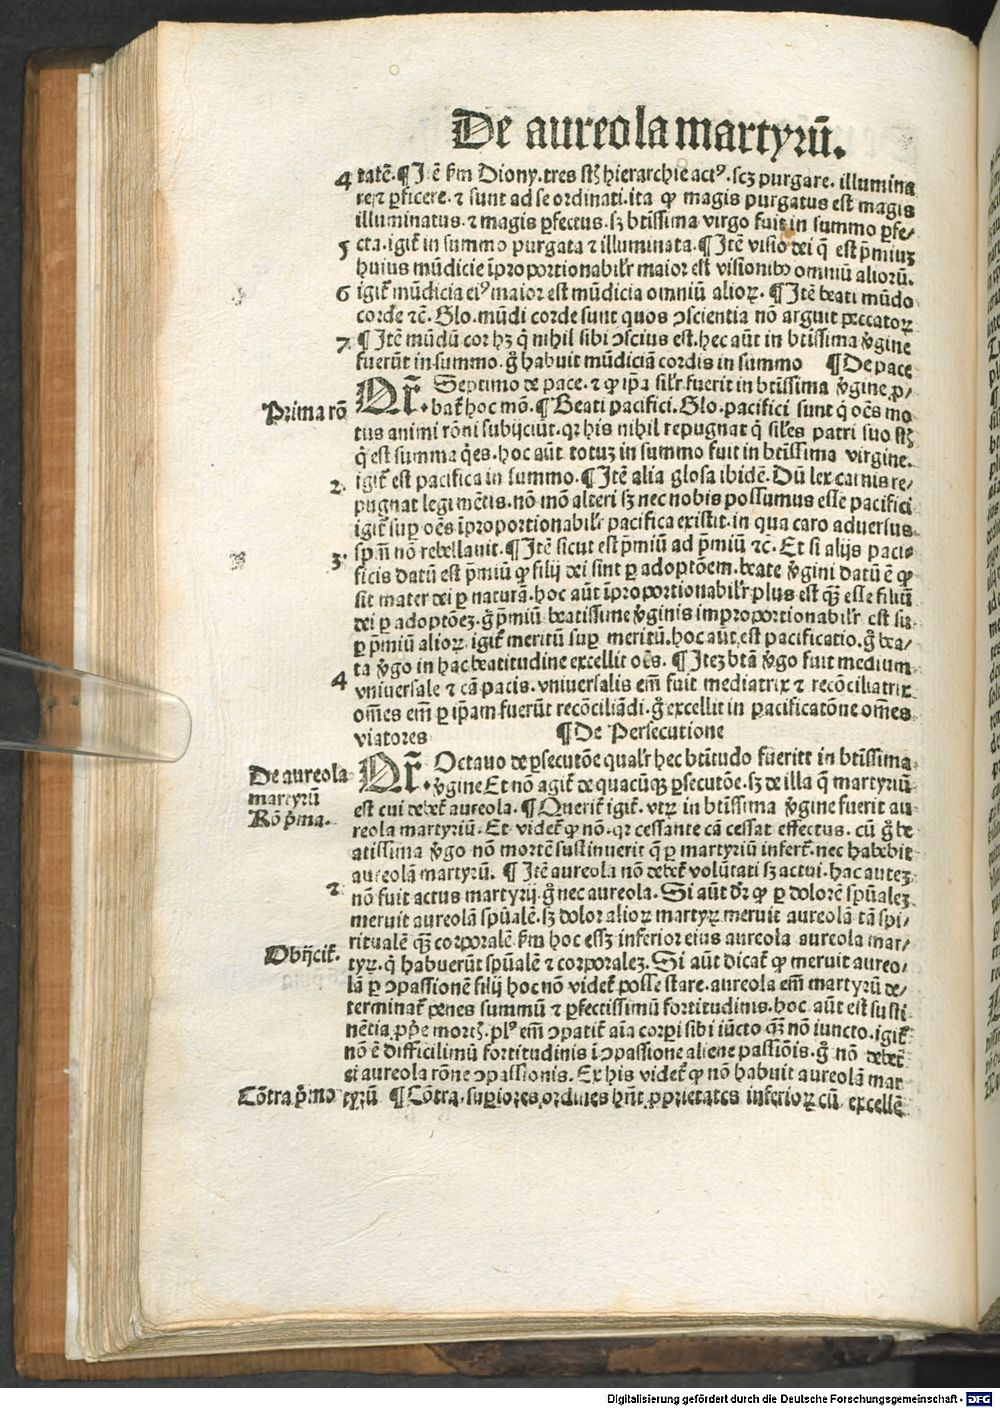 De aureola martyrū.
4 tatē. ¶ Itē ẜm Diony. tres sūt hierarchie actꝰ. scꝫ purgare. illumina
re ⁊ ꝑficere. ⁊ sunt ad se ordinati. ita ꝙ magis purgatus est magis
illuminatus. ⁊ magis ꝑfectus. sꝫ btissima virgo fuit in summo ꝑfe⸗
5 cta. igit̄ in summo purgata ⁊ illuminata. ¶ Itē visio dei q̄ est p̄miuꝫ
huius mūdicie īproportionabilr̄ maior est visionibꝰ omniū aliorū.
6 igit̄ mūdicia eiꝰ maior est mūdicia omniū alioꝝ. ¶ Itē beati mūdo
corde ⁊c̄. Glo. mūdi corde sunt quos ↄscientia nō arguit peccatoꝝ
7. ¶ Itē mūdū cor hꝫ q̄ nihil sibi ↄscius est. hec aūt in btissima v̄gine
fuerūt in summo. g̊ habuit mūdiciā cordis in summo ¶ De pace
Septimo de pace. ⁊ ꝙ ip̄a silr̄ fuerit in btissima v̄gine ꝓ⸗
Prima rō bat̄ hoc mō. ¶ Beati pacifici. Glo. pacifici sunt q̇ oēs mo
tus animi rōni subijciūt. qꝛ his nihil repugnat q̇ siles patri suo sūt
q̇ est summa q̇es. hoc aūt totuꝫ in summo fuit in btissima virgine.
2. igit̄ est pacifica in summo. ¶ Itē alia glosa ibidē. Dū lex carnis re⸗
pugnat legi mētis. nō mō alteri sꝫ nec nobis possumus esse pacifici
igit̄ suꝑ oēs īproportionabilr̄ pacifica existit. in qua caro aduersus
3. sp̄m nō rebellauit. ¶ Itē sicut est p̄miū ad p̄miū ⁊c̄. Et si alijs paci⸗
ficis datū est p̄miū ꝙ filij dei sint ꝑ adoptōem. beate v̄gini datū ē ꝙ
sit mater dei ꝑ naturā. hoc aūt īproportionabilr̄ plus est qꝫ esse filiū
dei ꝑ adoptōeꝫ. g̊ p̄miū beatissime v̄ginis improportionabilr̄ est su⸗
ꝑ p̄miū alioꝝ. igit̄ meritū suꝑ meritū. hoc aūt est pacificatio. g̊ bea⸗
ta v̄go in hac beatitudine excellit oēs. ¶ Iteꝫ btā v̄go fuit medium
4 vniuersale ⁊ cā pacis. vniuersalis em̄ fuit mediatrix ⁊ recōciliatrix
om̄es em̄ ꝑ ip̄am fuerūt recōciliādi. g̊ excellit in pacificatōne om̄es
viatores ¶ De Persecutione
Octauo de ꝑsecutōe qualr̄ hec btitudo fuerit in btissima
De aureola martyrū Rō p̄ma. v̄gine Et nō agit̄ de quacūqꝫ ꝑsecutōe. sꝫ de illa q̄ martyriū
est cui debet̄ aureola. ¶ Querit̄ igit̄. vtꝝ in btissima v̄gine fuerit au
reola martyriū. Et videt̄ ꝙ nō. qꝛ cessante cā cessat effectus. cū g̊ be
atissima v̄go nō mortē sustinuerit q̄ ꝑ martyriū infert̄. nec habebit
aureolā martyrū. ¶ Itē aureola nō debet̄ volūtati sꝫ actui. hac auteꝫ
2 nō fuit actus martyrij. g̊ nec aureola. Si aūt dr̄ ꝙ ꝑ dolorē spūaleꝫ
meruit aureolā spūalē. sꝫ dolor alioꝝ martyꝝ meruit aureolā tā spi⸗
ritualē qꝫ corporalē. ẜm hoc essꝫ inferior eius aureola aureola mar⸗
Obijcit̄. tyꝝ. q̇ habuerūt spūalē ⁊ corporaleꝫ. Si aūt dicat̄ ꝙ meruit aureo⸗
lā ꝑ ↄpassionē filij hoc nō videt̄ posse stare. aureola em̄ martyrū de⸗
terminat̄ penes summū ⁊ ꝑfectissimū fortitudinis. hoc aūt est susti
nētia ꝓp̄e mortis. plꝰ em̄ ↄpatit̄ aīa corpi sibi iūcto qꝫ nō iuncto. igit̄
nō ē difficilimū fortitudinis ī ↄpassione aliene passiōis. g̊ nō debet̄
ei aureola rōne ↄpassionis. Ex his videt̄ ꝙ nō habuit aureolā mar
Cōtra p̄mo tyrū ¶ Cōtra. superiores ordines hn̄t ꝓprietates inferioꝝ cū excellē
Digitalisierung gefördert durch die Deutsche Forschungsgemeinschaft - DFG